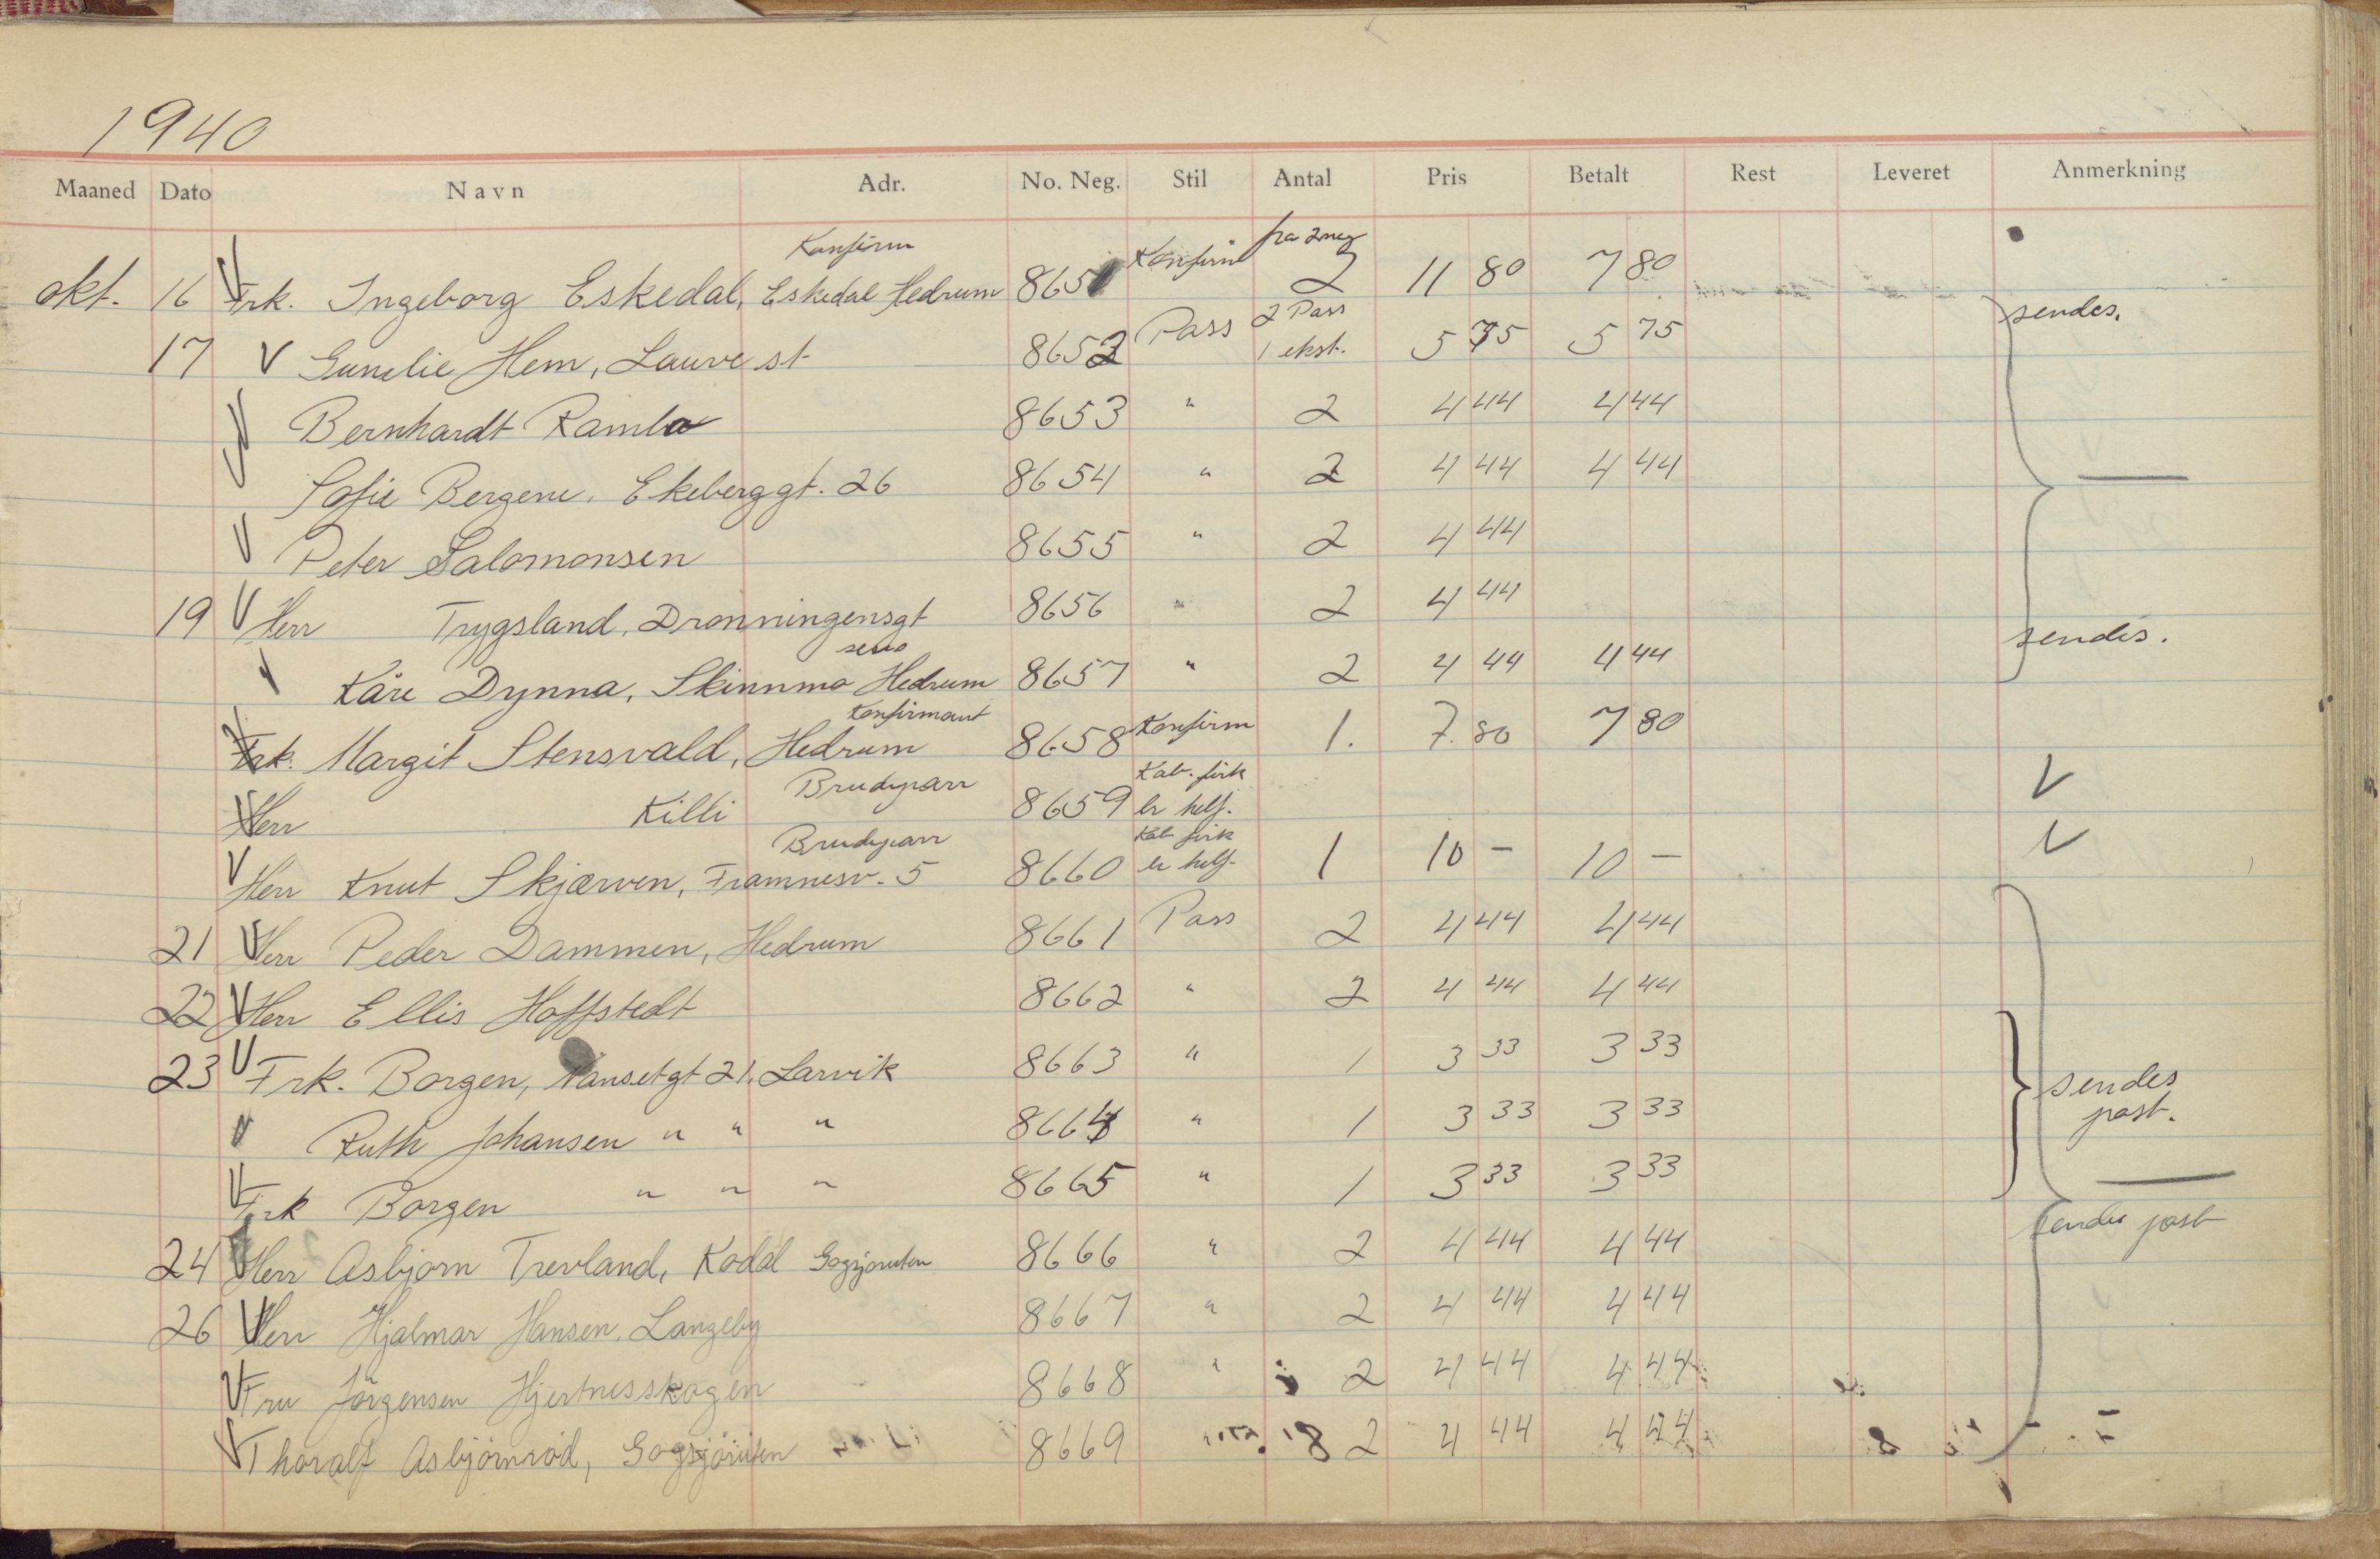 1940
Maaned Dato Navn Adr. No. Neg. Stil Antal Pris Betalt Rest Leveret Anmerkning
Konfirm fra 2 neg
okt. 16 V Frk. Ingeborg Eskedal, Eskedal Hedrum 8651 Konfirm 2 11 80 7 80
sendes.
17 V Gunelie Hem, Lauve st 8652 Pass 2 Pass 1 ekst. 5 75 5 75
V Bernhardt Ramlo 8653 " 2 4 44 4 44
V Sofie Bergene, Ekeberggt. 26 8654 " 2 4 44 4 44 —
V Peter Salomonsen 8655 " 2 4 44
19 V Herr Trygsland, Dronningensgt 8656 " 2 4 44
sendes.
V Kåre Dynna, Skinnmo Hedrum 8657 " 2 4 44 4 44
Konfirmant
Frk. Margit Stensvald, Hedrum 8658 Konfirm 1. 7. 80 7 80
Brudeparr Kab. firk V
V Herr Killi 8659 br helf.
Brudeparr Kab firk V
V Herr Knut Skjærven, Framnesv. 5 8660 br helf. 1 10 – 10 –
21 V Herr Peder Dammen, Hedrum 8661 Pass 2 4 44 4 44
22 V Herr Ellis Hoffstedt 8662 " 2 4 44 4 44
23 V Frk. Borgen, Nansetgt 21. Larvik 8663 " 1 3 33 3 33
sendes
post.
V Ruth Johansen " " " 8664 " 1 3 33 3 33
V Frk Borgen " " " 8665 " 1 3 33 3 33 —
sendes post
24 V Herr Asbjørn Trevland, Kodal Gogsjøruten 8666 " 2 4 44 4 44
26 V Herr Hjalmar Hansen, Langeby 8667 " 2 4 44 4 44
V Fru Jörgensen Hjertnesskogen 8668 " 2 4 44 4 44
V Thoralf Asbjörnröd, Gogsjöruten 8669 2 4 44 4 44